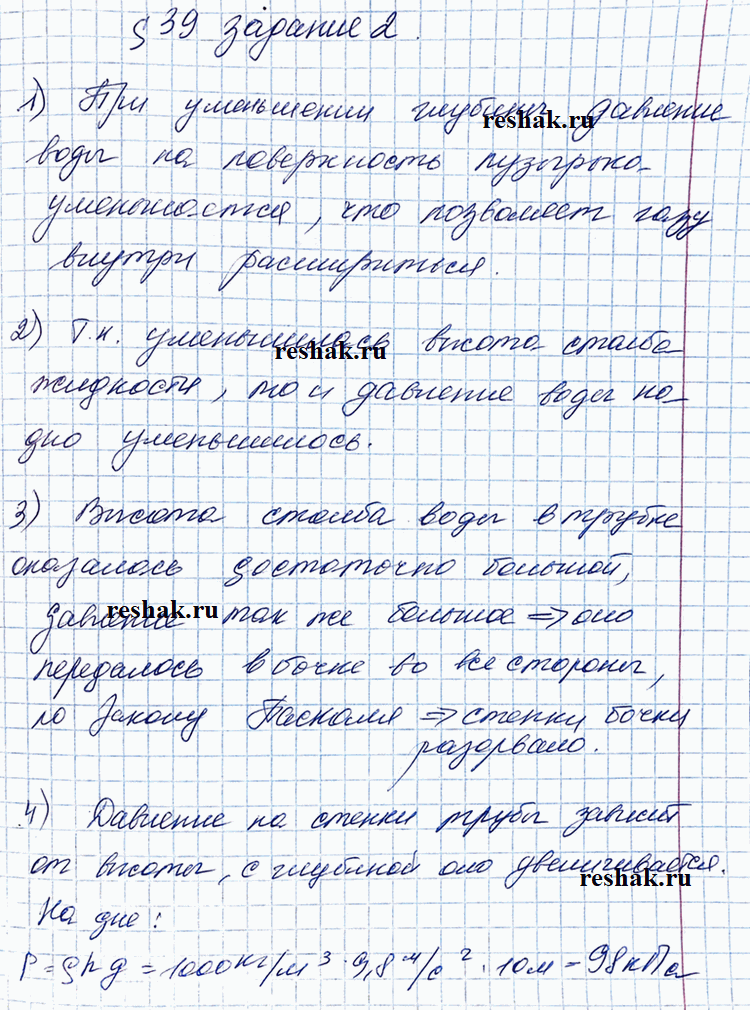 § 39 Задание 2.
1) При уменьшении глубины давление
reshak.ru
воды на поверхность пузырька
уменьшается, что позволяет газу
внутри расшириться.
2) Т.к. уменьшилась высота столба
reshak.ru
жидкости, то и давление воды на
дно уменьшилось.
3) Высота столба воды в трубке
оказалась достаточно большой,
давление так же большое => оно
reshak.ru
передалось в бочке во все стороны,
по Закону Паскаля => стенки бочки
разорвало.
4) Давление на стенки трубы зависит
от высоты, с глубиной оно увеличивается.
reshak.ru
На дне:
P = ρhg = 1000кг/м³ · 9,8 м/с² · 10м = 98кПа